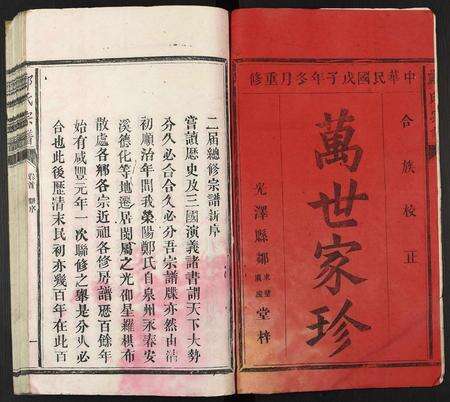 中華民國戊子年冬月重修
合族校正
萬世家珍
光澤縣鄒
堂梓
二届總修宗譜新序
嘗讀歷史及三國演義諸書謂天下大勢
分久必合合久必分吾宗譜牒亦然由清
初順治年間我滎陽鄭氏自泉州永春安
溪德化等地遷居閩屬之光邵星羅棋布
散處各鄉各宗近祖各修房譜歷百餘年
始有咸豐元年一次聯修之舉是分久必
合也此後歷清末民初亦幾百年在此百
氏宗譜
卷首
序
一